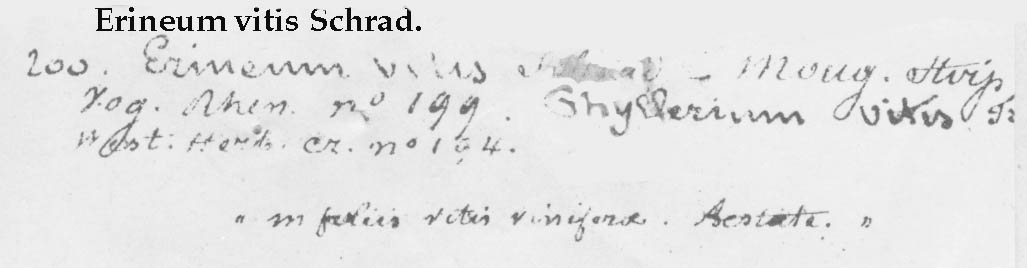 Erineum vitis Schrad.
200. Erineum vitis Schrad – Moug. Stirp
Vog. Rhen. nº 199. Phyllerium vitis Fr
West. Herb. cr. nº 194.
" in foliis vitis viniferæ. Aestate. "